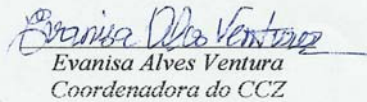 Evanisa Alves Ventura
Evanisa Alves Ventura
Coordenadora do CCZ